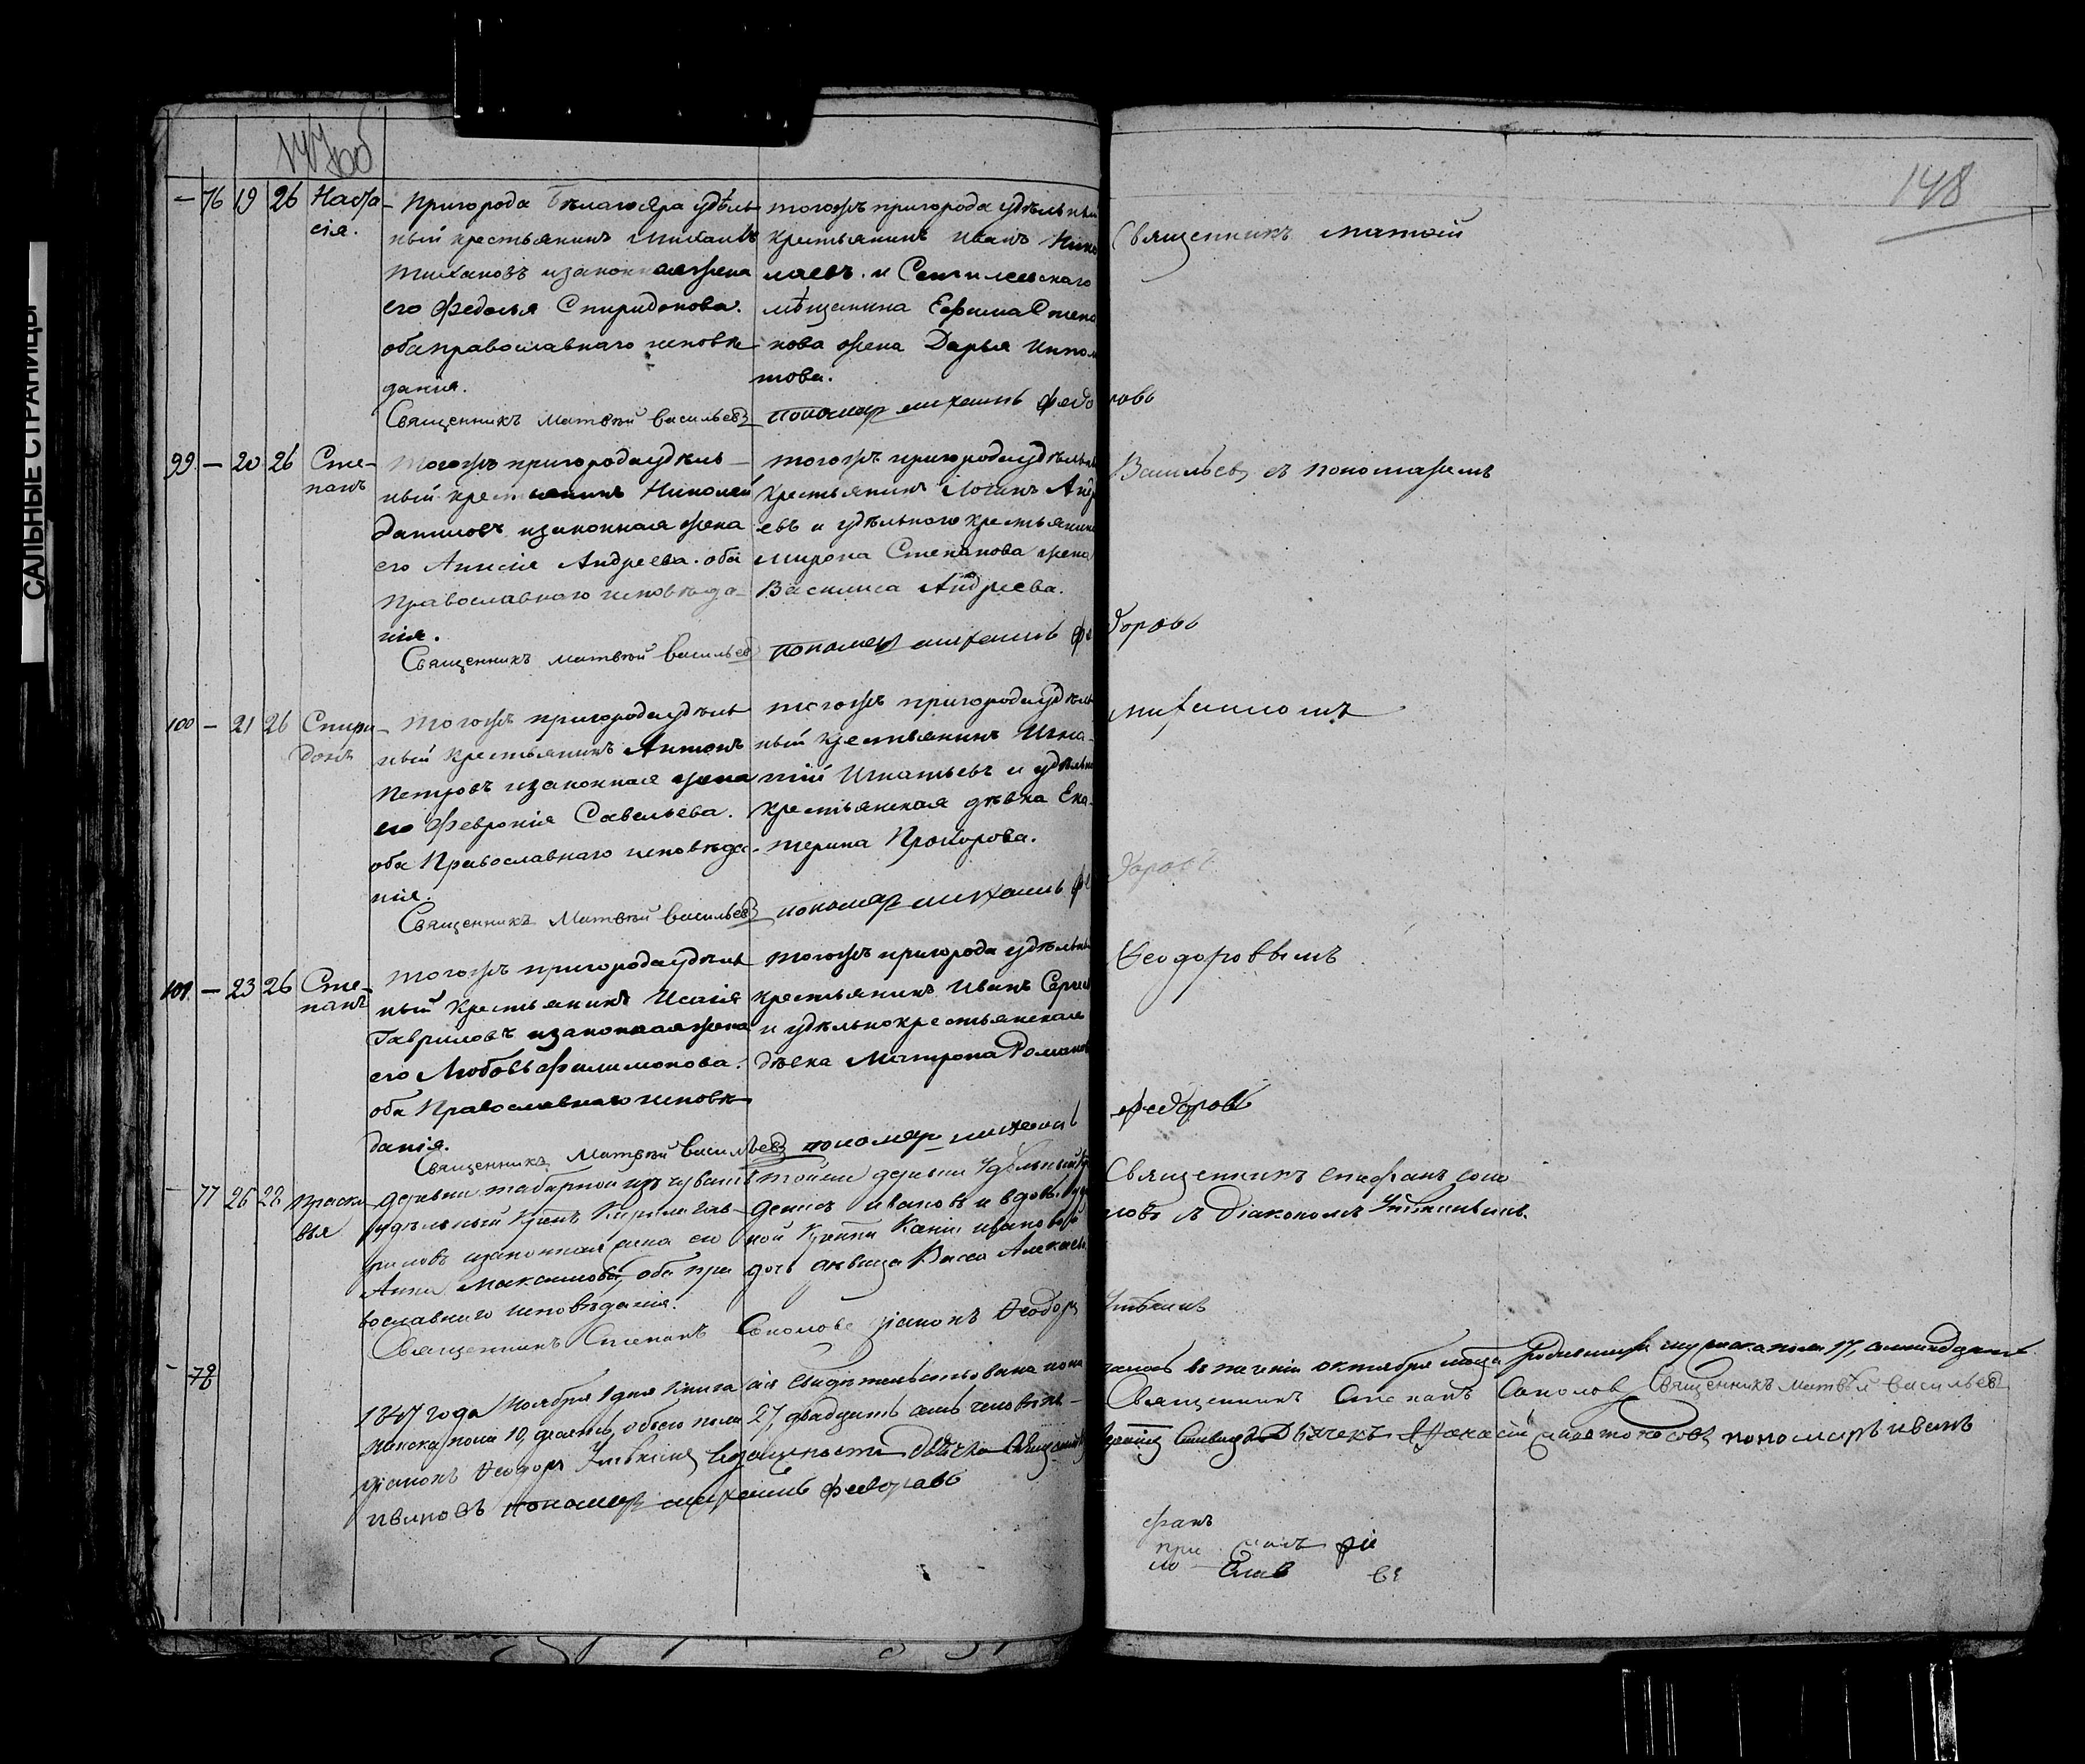 147 об
148
САЛЬНЫЕ СТРАНИЦЫ
— 76 19 26 Наста
сія.
Пригорода Бѣлаго Яра удѣль
ный крестьянинъ Михаилъ
Тихановъ и законная жена
его Федосья Спиридонова.
оба православнаго исповѣ
данія.
Священникъ Матвѣй Васильевъ
тогожъ пригорода удѣльный
крестьянинъ Иванъ Нико
лаевъ. и Сенгилеевскаго
мѣщанина Ефима Степа
нова жена Дарья Иппол
това.
пономарь Михаилъ Федоровъ
Священникъ Матвѣй
99 — 20 26 Сте-
панъ
Тогожъ пригорода удѣль
ный крестьянинъ Николай
Даниловъ и законная жена
его Анисія Андреева. оба
Православнаго исповѣда
нія.
Священникъ Матвѣй Васильевъ
тогожъ пригорода удѣльный
крестьянинъ Логинъ Андр
евъ и удѣльнаго крестьянина
Мирона Степанова жена
Василиса Андреева.
пономарь Михаилъ Федоровъ
Васильевъ съ пономаремъ
100 — 21 26 Спири
донъ
Тогожъ пригорода удѣль
ный крестьянинъ Антонъ
Петровъ и законная жена
его Февронія Савельева.
оба Православнаго исповѣда-
нія.
Священникъ Матвѣй Васильевъ
тогожъ пригорода удѣль
ный крестьянинъ Игна-
тій Игнатьевъ и удѣльно
крестьянская дѣвка Ека-
терина Прохорова.
пономарь Михаилъ Федоровъ
Михаиломъ
101 — 23 26 Сте-
панъ
Тогожъ пригорода удѣль
ный Крестьянинъ Исаія
Гавриловъ и законная жена
его Любовь Филимонова.
оба Православнаго исповѣ
данія.
Священникъ Матвѣй Васильевъ
тогожъ пригорода удѣльный
крестьянинъ Иванъ Сергеев
и удѣльнокрестьянская
дѣвка Матрона Романов
пономарь Михаилъ Федоровъ
Ѳеодоровымъ
— 77 26 28 Праско
вья
деревни из чувашъ
удѣльный Кирила Гав-
риловъ и законная жена его
Анна Максимова, оба пра
вославнаго исповѣданія.
Священникъ Степанъ Соколовъ діаконъ Ѳеодоръ
тойже деревни Удѣльный
Денисъ Ивановъ и
дочь дѣвица Васса Алексѣе
Священникъ Стефанъ Соко
ловъ съ Діакономъ
— 78
1847 года Ноября 1 дня Книга сія свидѣтельствована
чалось въ теченіи октября мѣсца родившихся мужеска пола 17,
женска пола 10, десять, обоего пола 27, двадцать семь человѣкъ —
Священникъ Степанъ Соколовъ Священникъ Матвѣй Васильевъ
діаконъ Ѳеодоръ
пономарь Иванъ
Ивановъ пономарь Михаилъ Федоровъ